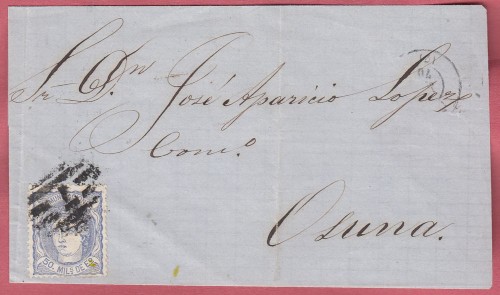 Sr. Dn. José Aparicio Lopez
Com.o
Osuna.
50 MILS DE E.